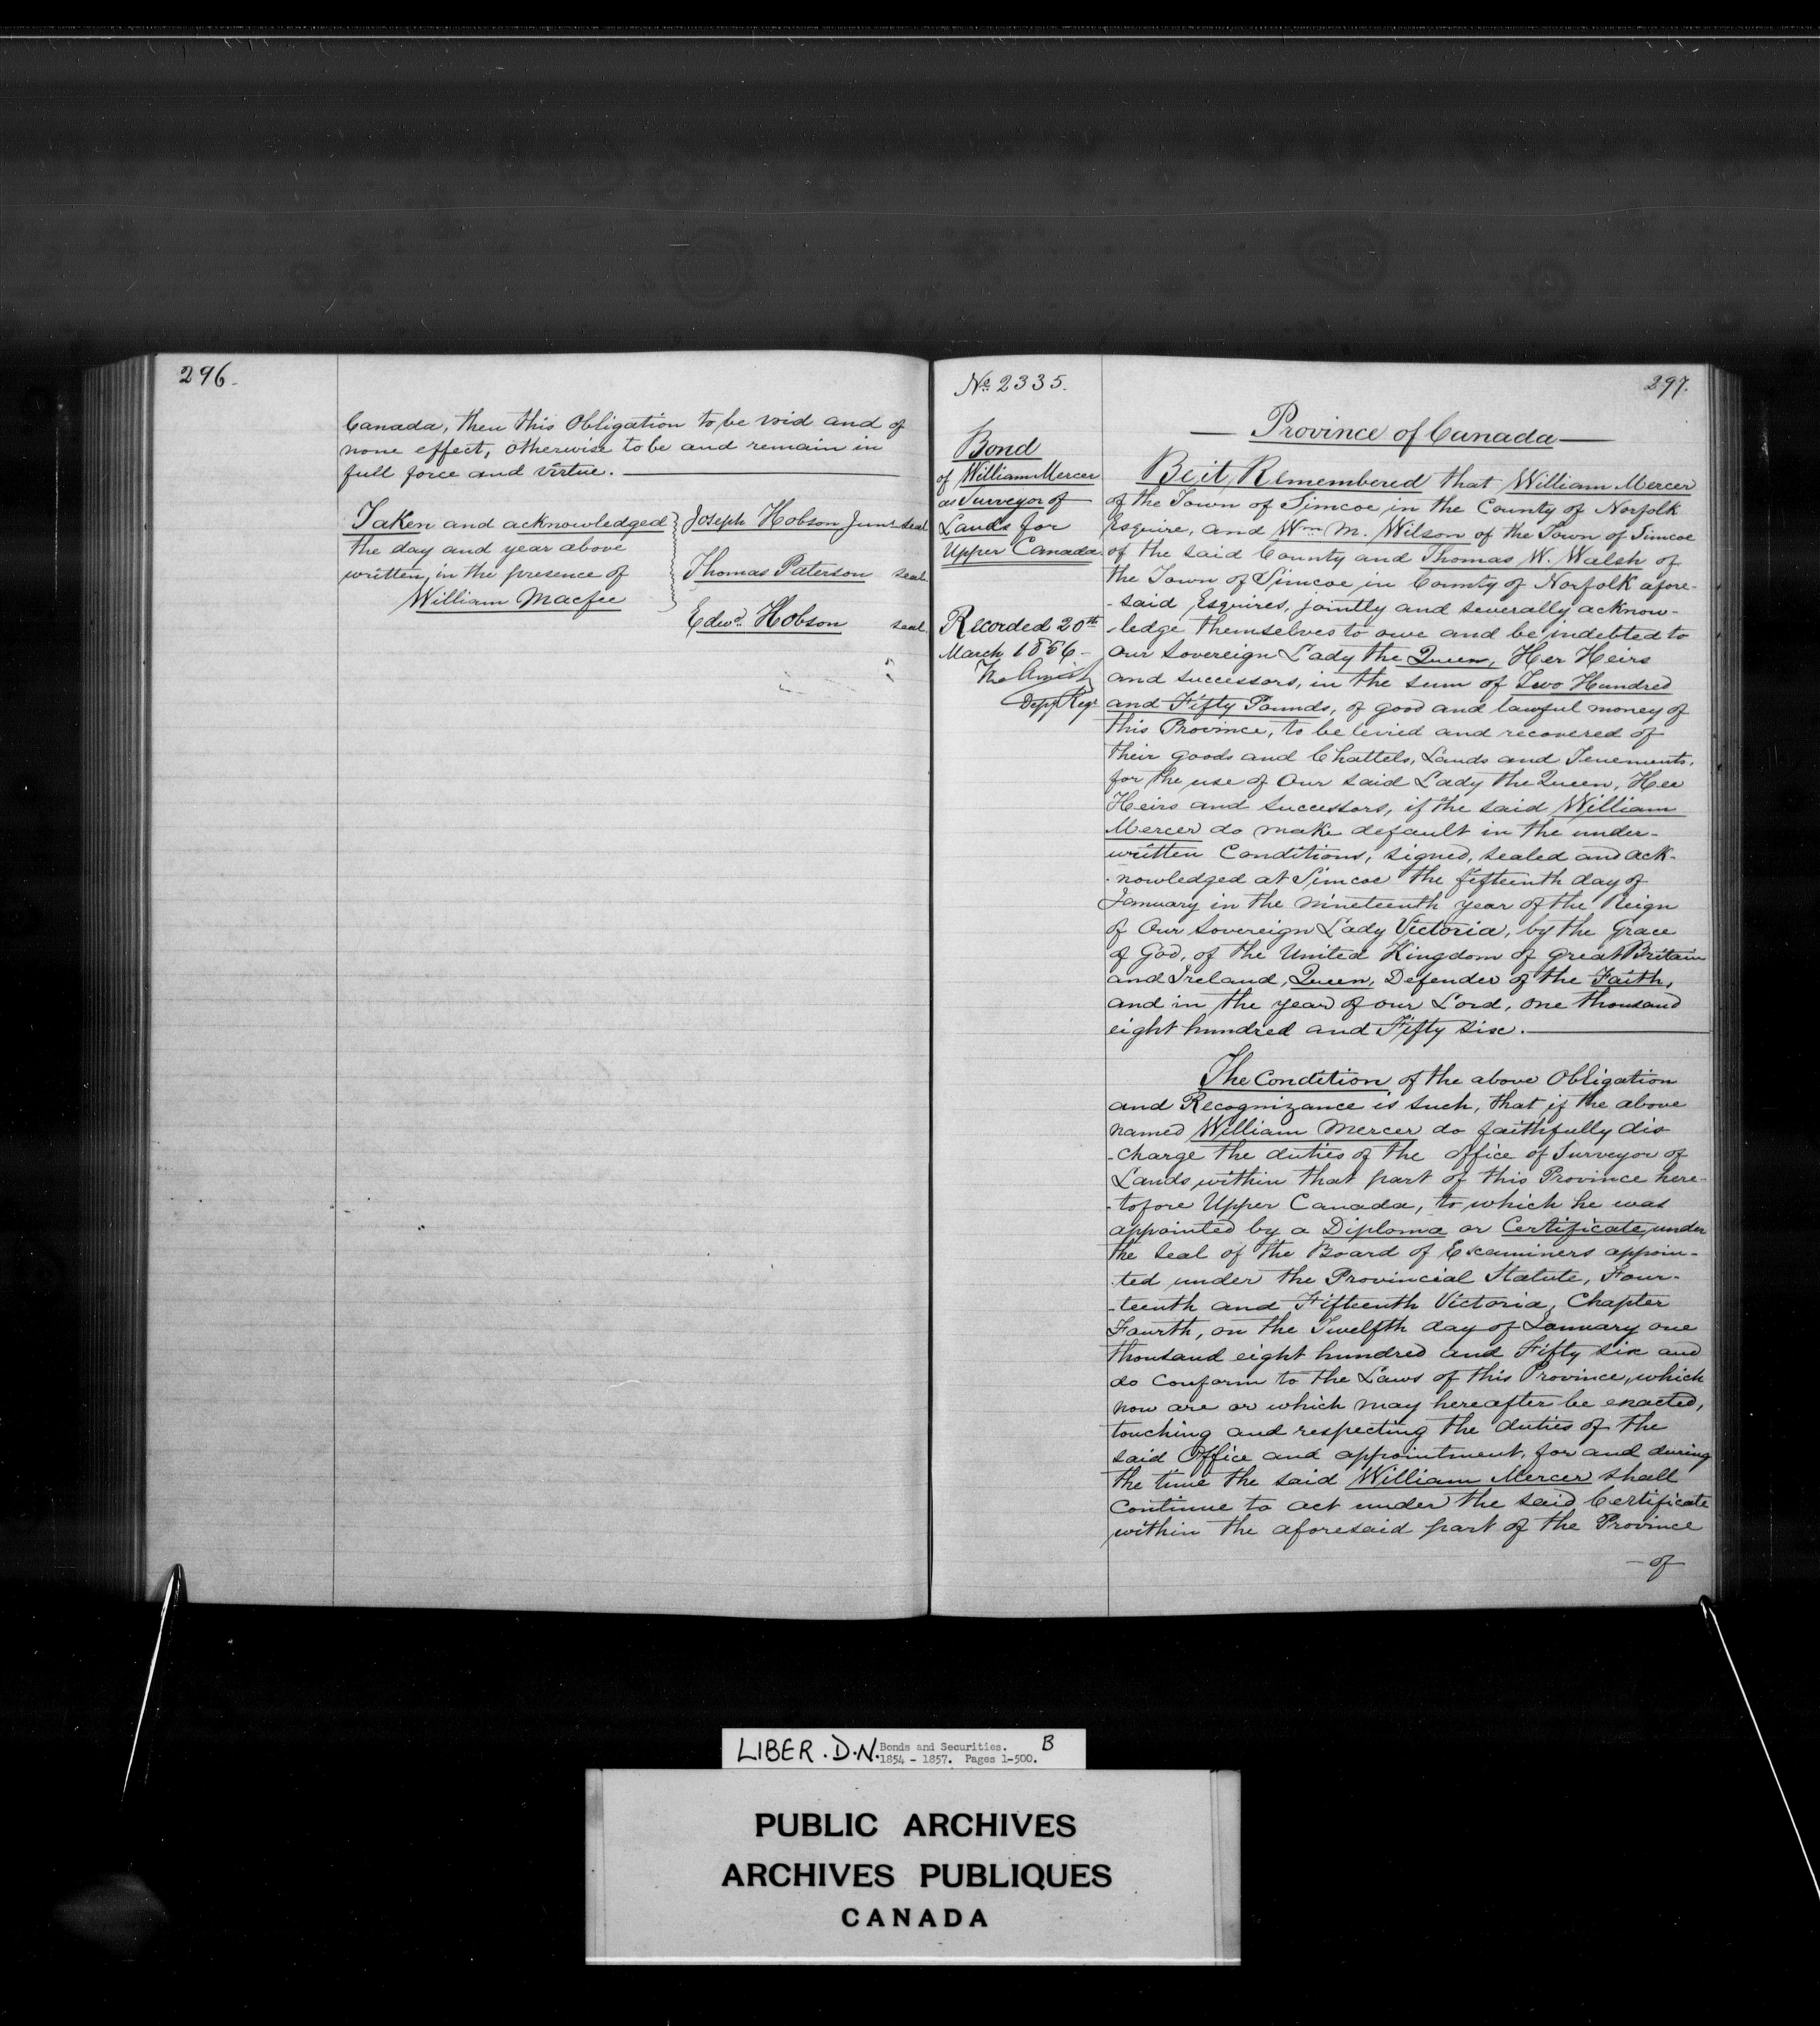 296.
Canada, then this Obligation to be void and of
none effect, otherwise to be and remain in
full force and virtue.
Taken and acknowledged
the day and year above
written, in the presence of
William Macfee
Joseph Hobson Junr seal
Thomas Paterson seal
Edwd. Hobson seal
No. 2335.
Bond
of William Mercer
as Surveyor of
Lands for
Upper Canada
Recorded 20th
March 1856
Depy Regr
297.
Province of Canada
Be it Remembered that William Mercer
of the Town of Simcoe in the County of Norfolk
Esquire, and Wm M. Wilson of the Town of Simcoe
of the said County and Thomas W. Walsh of
the Town of Simcoe in County of Norfolk afore-
-said Esquires, jointly and severally acknow-
-ledge themselves to owe and be indebted to
our Sovereign Lady the Queen, Her Heirs
and successors, in the sum of Two Hundred
and Fifty Pounds, of good and lawful money of
this Province, to be levied and recovered of
their goods and Chattels, Lands and Tenements,
for the use of Our said Lady the Queen, Her
Heirs and successors, if the said William
Mercer do make default in the under-
written Conditions, signed, sealed and ack-
-nowledged at Simcoe the fifteenth day of
January in the nineteenth year of the Reign
of Our Sovereign Lady Victoria, by the Grace
of God, of the United Kingdom of Great Britain
and Ireland, Queen, Defender of the Faith,
and in the year of our Lord, one thousand
eight hundred and Fifty six.
The Condition of the above Obligation
and Recognizance is such, that if the above
named William Mercer do faithfully dis
-charge the duties of the office of Surveyor of
Lands within that part of this Province here-
-tofore Upper Canada, to which he was
appointed by a Diploma or Certificate under
the Seal of the Board of Examiners appoin-
-ted under the Provincial Statute, Four-
-teenth and Fifteenth Victoria, Chapter
Fourth, on the Twelfth day of January one
thousand eight hundred and Fifty six and
do conform to the Laws of this Province, which
now are or which may hereafter be enacted,
touching and respecting the duties of the
said Office and appointment, for and during
the time the said William Mercer shall
continue to act under the said Certificate
within the aforesaid part of the Province
- of
LIBER. D.N. Bonds and Securities. B
1854 - 1857. Pages 1-500.
PUBLIC ARCHIVES
ARCHIVES PUBLIQUES
CANADA